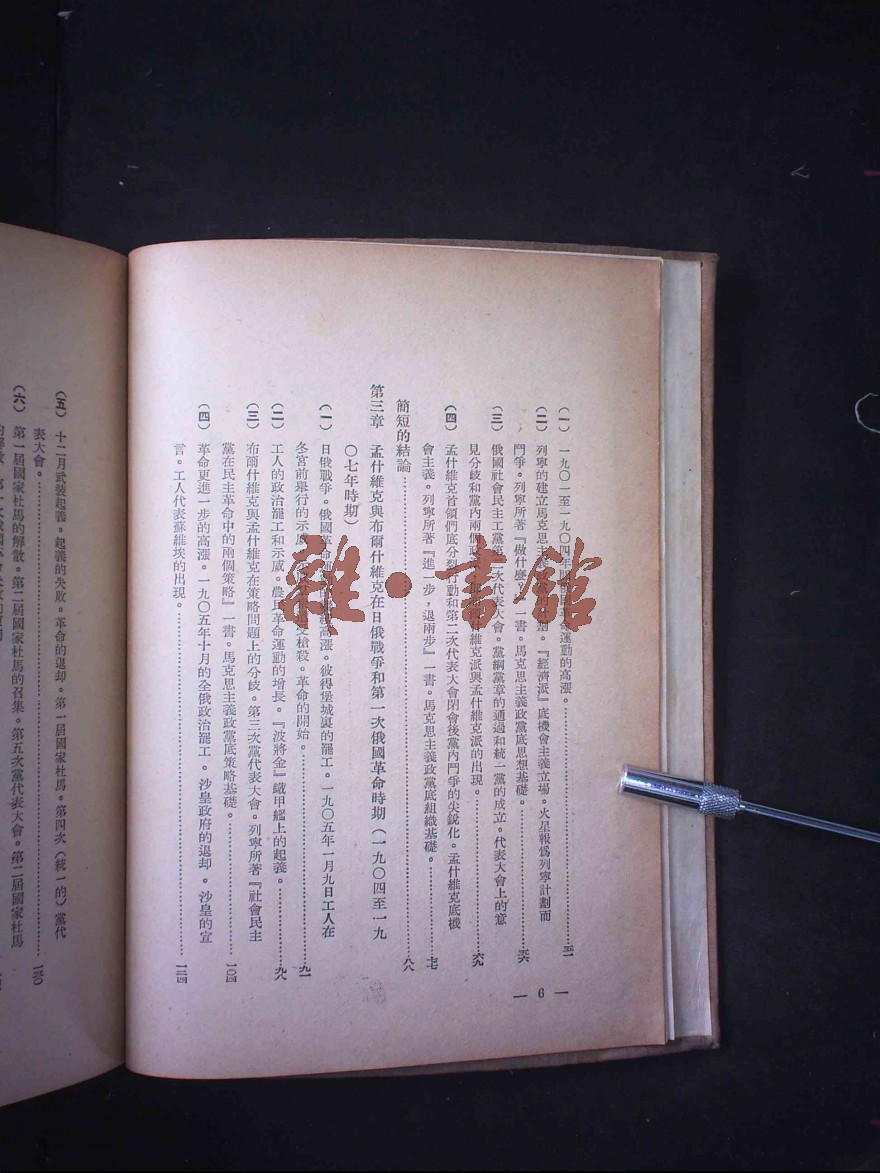 (一) 一九〇一至一九〇四年 運動的高漲。 五一
(二) 列寧的建立馬克思主義政黨 『經濟派』底機會主義立場。火星報爲列寧計劃而
鬥爭。列寧所著『做什麼?』一書。馬克思主義政黨底思想基礎。 五六
(三) 俄國社會民主工黨第二次代表大會。黨綱黨章的通過和統一黨的成立。代表大會上的意
見分歧和黨內兩個 什維克派與孟什維克派的出現。 六九
(四) 孟什維克首領們底分裂行動和第二次代表大會閉會後黨內鬥爭的尖銳化。孟什維克底機
會主義。列寧所著『進一步,退兩步』一書。馬克思主義政黨底組織基礎。 七七
簡短的結論 八八
第三章 孟什維克與布爾什維克在日俄戰爭和第一次俄國革命時期(一九〇四至一九
〇七年時期)
(一) 日俄戰爭。俄國革命運 高漲。彼得堡城裏的罷工。一九〇五年一月九日工人在
冬宮前舉行的示威 槍殺。革命的開始。 九一
(二) 工人的政治罷工和示威。農民革命運動的增長。『波將金』鐵甲艦上的起義。 九八
(三) 布爾什維克與孟什維克在策略問題上的分歧。第三次黨代表大會。列寧所著『社會民主
黨在民主革命中的兩個策略』一書。馬克思主義政黨底策略基礎。 一〇四
(四) 革命更進一步的高漲。一九〇五年十月的全俄政治罷工。沙皇政府的退却。沙皇的宣
言。工人代表蘇維埃的出現。 一二四
— 6 —
(五) 十二月武裝起義。起義的失敗。革命的退却。第一屆國家杜馬。第四次(統一的)黨代
表大會。 一三〇
(六) 第一屆國家杜馬的解散。第二屆國家杜馬的召集。第五次黨代表大會。第二屆國家杜馬
雜·書館